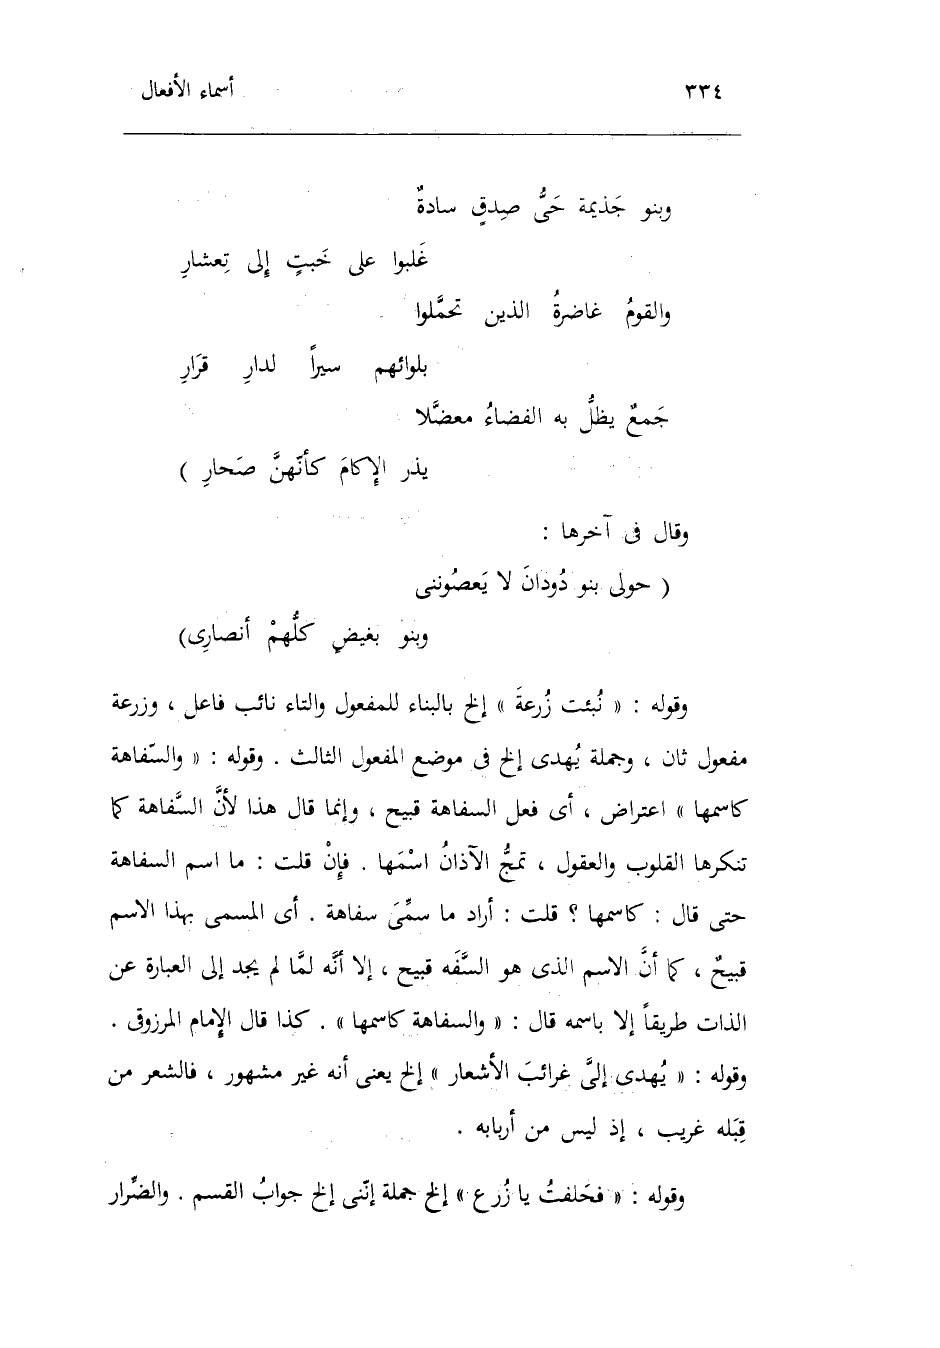 ٣٣٤ أسماء الأفعال
وبنو جَذيمة حَىُّ صِدقٍ سادةٌ
غَلبوا على خَبتٍ إِلى تِعشارِ
والقومُ غاضرةُ الذين تحمَّلوا
بلوائهم سيراً لدارِ قرَارِ
جَمعٌ يظلُّ به الفضاءُ معضَّلا
يذر الإِكامَ كأنّهنَّ صَحارِ )
وقال فى آخرها :
( حولى بنو دُودانَ لا يَعصُوننى
وبنو بغيضٍ كلُّهمْ أنصارِى)
وقوله : « نُبئت زُرعةَ » إلخ بالبناء للمفعول والتاء نائب فاعل ، وزرعة
مفعول ثان ، وجملة يُهدى إلخ فى موضع المفعول الثالث . وقوله : « والسّفاهة
كاسمها » اعتراض ، أى فعل السفاهة قبيح ، وإنما قال هذا لأنَّ السَّفاهة كما
تنكرها القلوب والعقول ، تمجُّ الآذانُ اسْمَها . فإِنْ قلت : ما اسم السفاهة
حتى قال : كاسمها ؟ قلت : أراد ما سمِّىَ سفاهة . أى المسمى بهذا الاسم
قبيحٌ ، كما أنَّ الاسم الذى هو السَّفَه قبيح ، إلا أنَّه لمَّا لم يجد إلى العبارة عن
الذات طريقاً إلا باسمه قال : « والسفاهة كاسمها » . كذا قال الإِمام المرزوقى .
وقوله : « يُهدى إلىَّ غرائبَ الأشعار » إلخ يعنى أنه غير مشهور ، فالشعر من
قِبَله غريب ، إذ ليس من أربابه .
وقوله : « فحَلفتُ يا زُرع » إلخ جملة إنّنى إلخ جوابُ القسم . والضِّرار